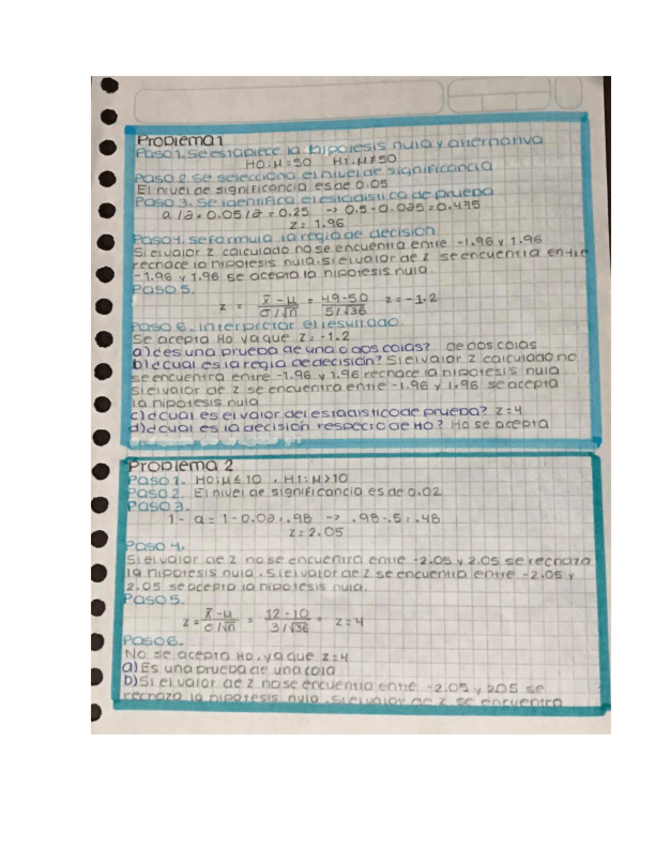 Problema 1
Paso 1. Se establece la hipotesis nula y alternativa
H0: μ = 50 H1: μ ≠ 50
Paso 2. Se selecciona el nivel de significancia
El nivel de significancia es de 0.05
Paso 3. Se identifica el estadistico de prueba
a/2 = 0.05/2 = 0.25 → 0.5 - 0.025 = 0.475
z = 1.96
Paso 4. se formula la regla de decisión
Si el valor z calculado no se encuentra entre -1.96 y 1.96
rechace la hipotesis nula. si el valor de z se encuentra entre
-1.96 y 1.96 se acepta la hipotesis nula.
Paso 5.
z = x̄ - μ / σ/√n = 49-50 / 5/√36 z = -1.2
Paso 6. interpretar el resultado
Se acepta H0 ya que z = -1.2
a) ¿es una prueba de una o dos colas? de dos colas
b) ¿cual es la regla de decisión? Si el valor z calculado no
se encuentra entre -1.96 y 1.96 rechace la hipotesis nula.
si el valor de z se encuentra entre -1.96 y 1.96 se acepta
la hipotesis nula
c) ¿cual es el valor del estadistico de prueba? z = 4
d) ¿cual es la decisión respecto de H0? H0 se acepta
Problema 2
Paso 1. H0: μ ≤ 10 , H1: μ > 10
Paso 2. El nivel de significancia es de 0.02
Paso 3.
1 - a = 1 - 0.02 = .98 → .98 - .5 = .48
z = 2.05
Paso 4.
Si el valor de z no se encuentra entre -2.05 y 2.05 se rechaza
la hipotesis nula. Si el valor de z se encuentra entre -2.05 y
2.05 se acepta la hipotesis nula.
Paso 5.
z = x̄ - μ / σ/√n = 12-10 / 3/√36 = z = 4
Paso 6.
No se acepta H0, ya que z = 4
a) Es una prueba de una cola
b) Si el valor de z no se encuentra entre -2.05 y 2.05 se
rechaza la hipotesis nula. Si el valor de z se encuentra